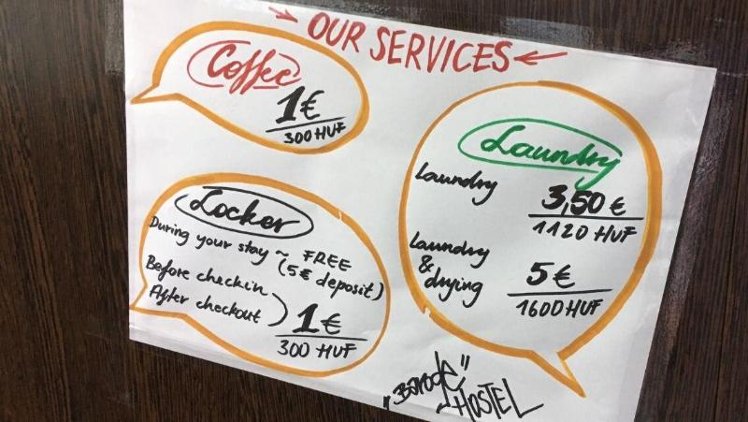 OUR SERVICES
Coffee
1€
300 HUF
Locker
During your stay ~ FREE
(5€ deposit)
Before checkin
After checkout
1€
300 HUF
Laundry
Laundry
3,50 €
1120 HUF
Laundry
&
drying
5€
1600 HUF
„Barode"
HOSTEL